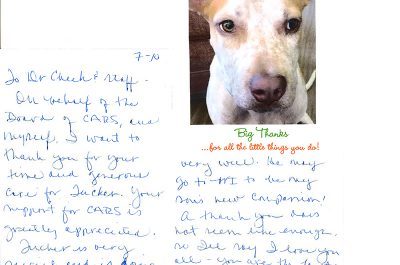 7-10
To Dr Cheek & staff -
On behalf of the
Board of CARS, and
myself, I want to
thank you for your
time and generous
care for Tucker. Your
support for CARS is
greatly appreciated.
Tucker is very
Big Thanks
...for all the little things you do!
very well. He may
go to HI to be my
son's new companion!
A thank you does
not seem like enough,
so I'll say I love you
all - you are the